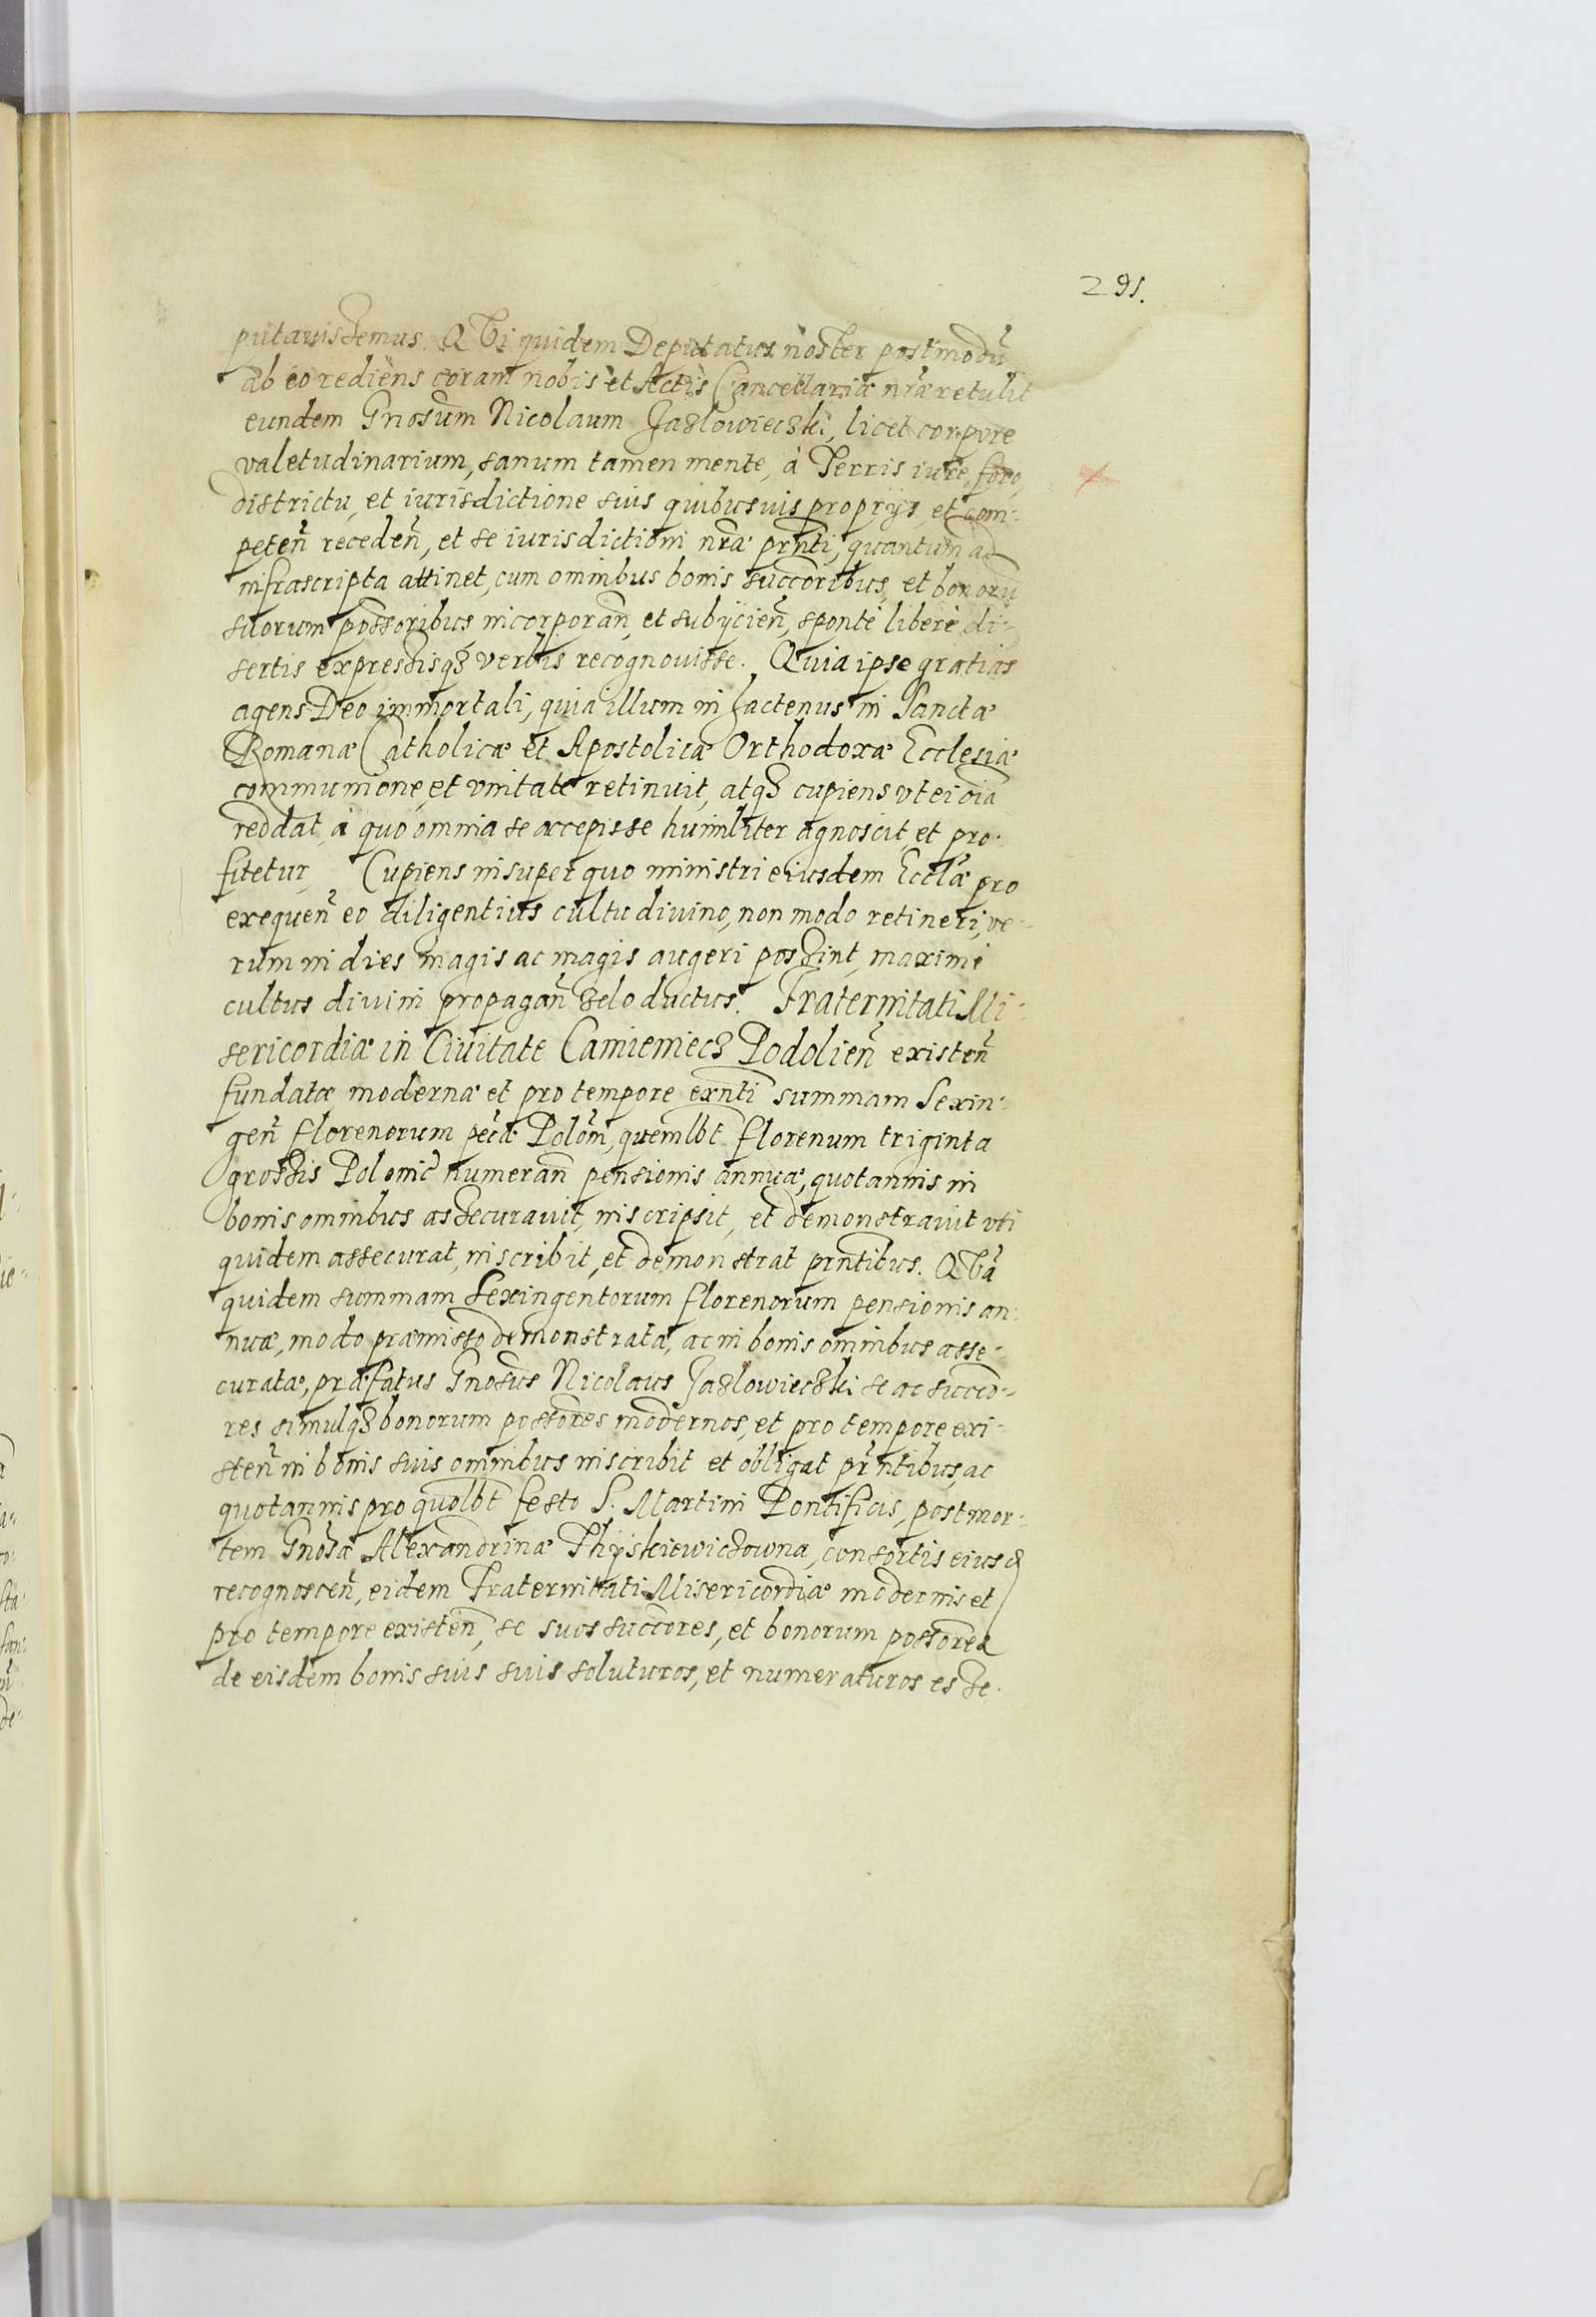 291.
putavissemus. Qui quidem Deputatus noster postmodū
ab eo rediens coram nobis et Actis Cancellariæ nr̃æ retulit
eundem Gnosum Nicolaum Jazlowieczki, licet corpore
valetudinarium, sanum tamen mente, à Terris iure, foro,
districtu, et iurisdictione suis quibusuis proprijs, et com-
peteñ recedeñ, et se iurisdictioni nr̃æ prñti, quantum ad
infrascripta attinet, cum omnibus bonis succoribus, et bonorũ
suorum possoribus, incorporañ, et subÿcieñ, sponte libere di-
sertis expressisqꝫ verbis recognouisse. Quia ipse gratias
agens Deo immortali, quia illum in hactenus in Sanctæ
Romanæ Catholicæ et Apostolicæ Orthodoxæ Ecclesiæ
communione, et vnitate retinuit, atqꝫ cupiens vt ei oĩa
reddat, à quo omnia se accepisse humiliter agnoscit, et pro-
fitetur, Cupiens insuper quo ministri eiusdem Eccl̃æ pro
exequeñ eo diligentius cultu divino, non modo retineri, ve-
rum in dies magis ac magis augeri possint, maxime
cultus divini propagañ zelo ductus. Fraternitati Mi-
sericordiæ in Ciuitate Camieniecz Podolieñ existeñ
fundatæ modernæ et pro tempore exñti summam Sexin-
geñ florenorum pec̃æ Polõn, quemlbt florenum triginta
grossis Polonic̃ numerañ pensionis annuæ, quotannis in
bonis omnibus assecuravit, inscripsit, et demonstravit vti
quidem assecurat, inscribit, et demonstrat prñtibus. Quã
quidem summam Sexingentorum florenorum pensionis an-
nuæ, modo præmisso demonstratæ, ac in bonis omnibus asse-
curatæ, præfatus Gnosus Nicolaus Jazlowieczki se ac succo-
res simulqꝫ bonorum possores modernos, et pro tempore exi-
steñ in bonis suis omnibus inscribit et obligat pr̃ntibus, ac
quotannis pro quolbt festo S. Martini Pontificis, post mor-
tem Gnosæ Alexandrinæ Thÿskiewiczowna, consortis eiusd
recognosceñ, eidem Fraternitati Misericordiæ modernis et
pro tempore existeñ, se suos succores, et bonorum possores
de eisdem bonis suis suis soluturos, et numeraturos esse.